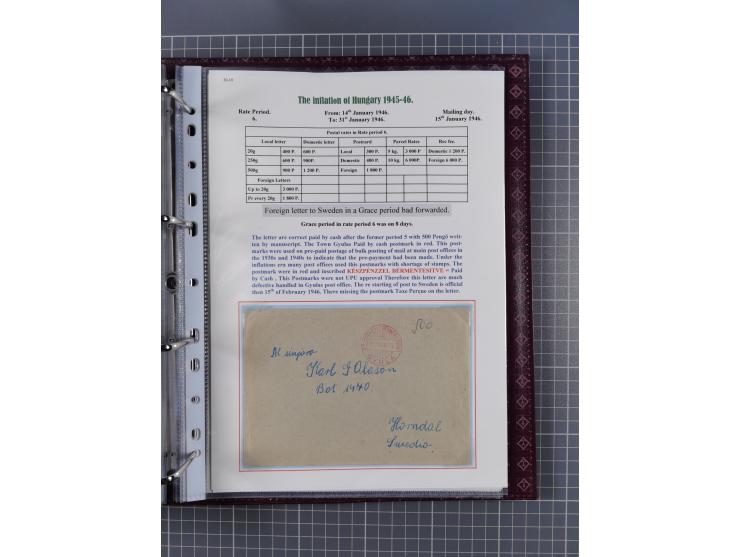 The inflation of Hungary 1945-46.
Rate Period. From: 14th January 1946. Mailing day.
6. To: 31st January 1946. 15th January 1946.
Postal rates in Rate period 6.
Local letter Domestic letter Postcard Parcel Rates Rec fee.
20g 400 P. 600 P. Local 300 P. 5 kg. 3 000 P Domestic 1 200 P.
250g 600 P. 900P. Domestic 400 P. 10 kg. 6 000P. Foreign 6 000 P.
500g 900 P 1 200 P. Foreign 1 800 P.
Foreign Letters
Up to 20g 3 000 P.
Pr every 20g 1 800 P.
Foreign letter to Sweden in a Grace period bad forwarded.
Grace period in rate period 6 was on 8 days.
The letter are correct paid by cash after the former period 5 with 500 Pengó writ-
ten by manuscript. The Town Gyulus Paid by cash postmark in red. This post-
marks were used on pre-paid postage of bulk posting of mail at main post offices in
the 1930s and 1940s to indicate that the pre-payment had been made. Under the
inflations era many post offices used this postmarks with shortage of stamps. The
postmark were in red and inscribed KÉSZPÉNZZEL BÉRMENTESITVE = Paid
by Cash , This Postmarks were not UPU approval Therefore this letter are much
defective handled in Gyulus post office. The re starting of post to Sweden is official
then 15th of February 1946. There missing the postmark Taxe Perçue on the letter.
500
GYULA
Karl G Olason
Box 1940.
Horndal
Suedia